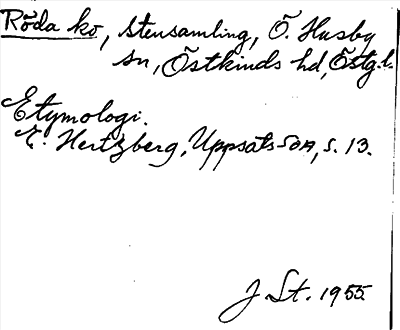 Röda ko, stensamling, Ö. Husby
sn, Östkinds hd, Östg.l.
Etymologi.
E. Hertzberg, Uppsats SOA, s. 13.
J. St. 1955